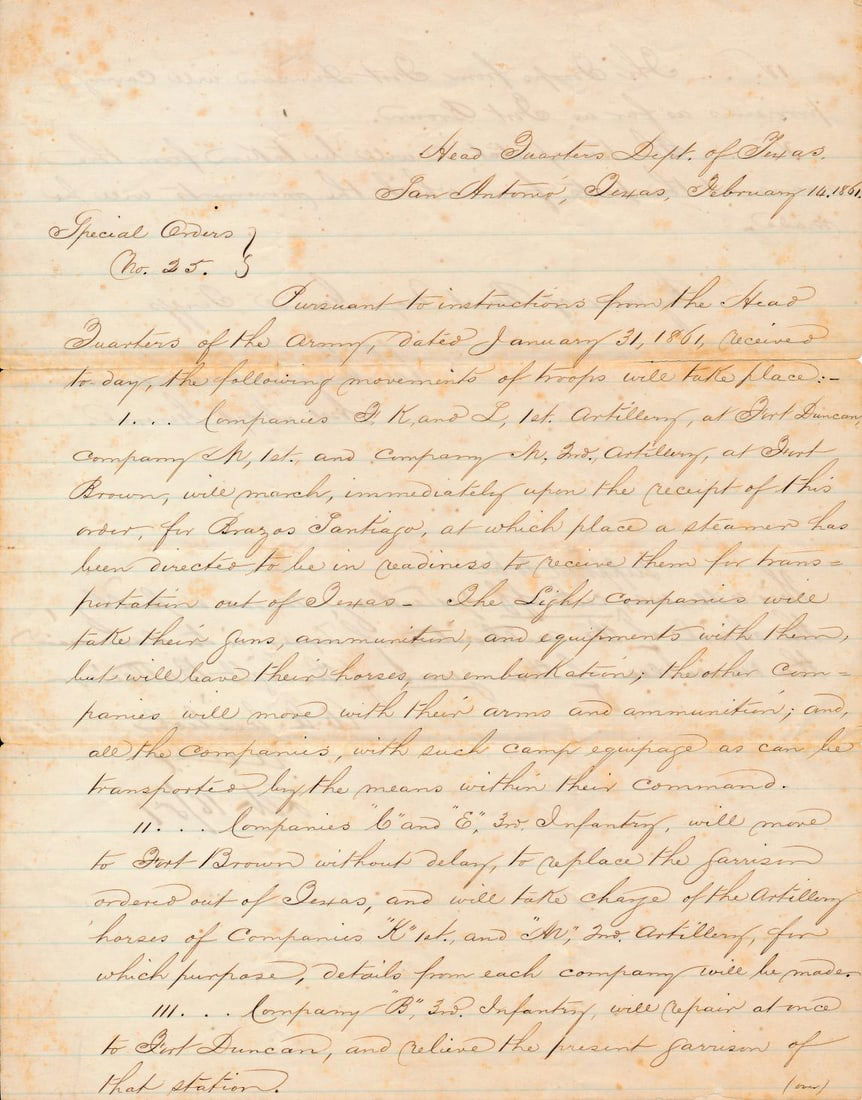 Head Quarters Dept. of Texas.
San Antonio, Texas, February 14. 1861.
Special Orders }
No. 25. }
Pursuant to instructions from the Head
Quarters of the Army, dated January 31, 1861, received
to day, the following movements of troops will take place:-
1... Companies F. K, and L, 1st. Artillery, at Fort Duncan,
company M, 1st., and company M, 2nd., Artillery, at Fort
Brown, will march, immediately upon the receipt of this
order, for Brazos Santiago, at which place a steamer has
been directed to be in readiness to receive them for trans=
portation out of Texas - The Light companies will
take their guns, ammunition, and equipments with them,
but will leave their horses, on embarkation; the other com=
panies will move with their arms and ammunition; and,
all the companies, with such camp equipage as can be
transported by the means within their command.
11... Companies "C" and "E", 3rd. Infantry, will move
to Fort Brown without delay, to replace the garrison
ordered out of Texas, and will take charge of the Artillery
horses of Companies "K" 1st., and "M", 2nd. Artillery, for
which purpose, details from each company will be made.
111... Company "B", 3rd. Infantry, will repair at once
to Fort Duncan, and relieve the present garrison of
that station.
(over)